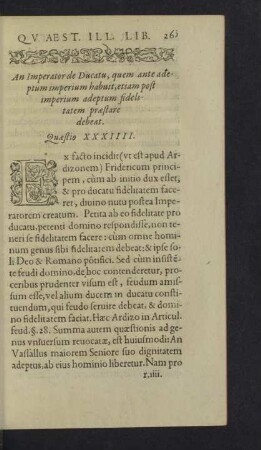 QVAEST. ILL. LIB. 263
An Imperator de Ducatu, quem ante ade-
ptum imperium habuit, etiam post
imperium adeptum fideli-
tatem præstare
debeat.
Quæstio XXXIIII.
Ex facto incidit (vt est apud Ar-
dizonem) Fridericum princi-
pem, cùm ab initio dux esset,
& pro ducatu fidelitatem face-
ret, diuino nutu postea Impe-
ratorem creatum. Petita ab eo fidelitate pro
ducatu, petenti domino respondisse, non te-
neri se fidelitatem facere: cùm omne homi-
num genus sibi fidelitatem debeat: & ipse so-
li Deo & Romano põtifici. Sed cùm insistẽ-
te feudi domino, de hoc contenderetur, pro-
ceribus prudenter visum est, feudum amis-
sum esse, vel alium ducem in ducatu consti-
tuendum, qui feudo seruire debeat, & domi-
no fidelitatem faciat. Hæc Ardizo in Articul.
feud. §. 28. Summa autem quæstionis ad ge-
nus vnsuersum reuocatæ, est huiusmodi: An
Vassallus maiorem Seniore suo dignitatem
adeptus, ab eius hominio liberetur. Nam pro
r.iiii.